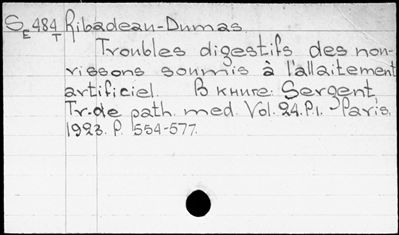 SE 484 T Ribadeau-Dumas.
Troubles digestifs des nour-
rissons soumis à l'allaitement
artificiel. В книге: Sergent
Tr. de path. med. Vol. 24. P.1. Paris.
1923. P. 554-577.